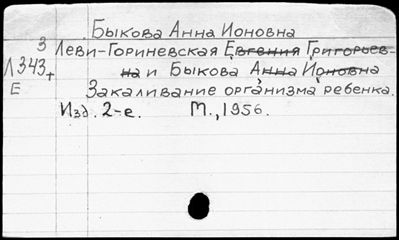 Быкова Анна Ионовна
З Леви-Гориневская Евгения Григорьев-
Л343т на и Быкова Анна Ионовна
Е Закаливание организма ребенка.
Изд. 2-е. М., 1956.